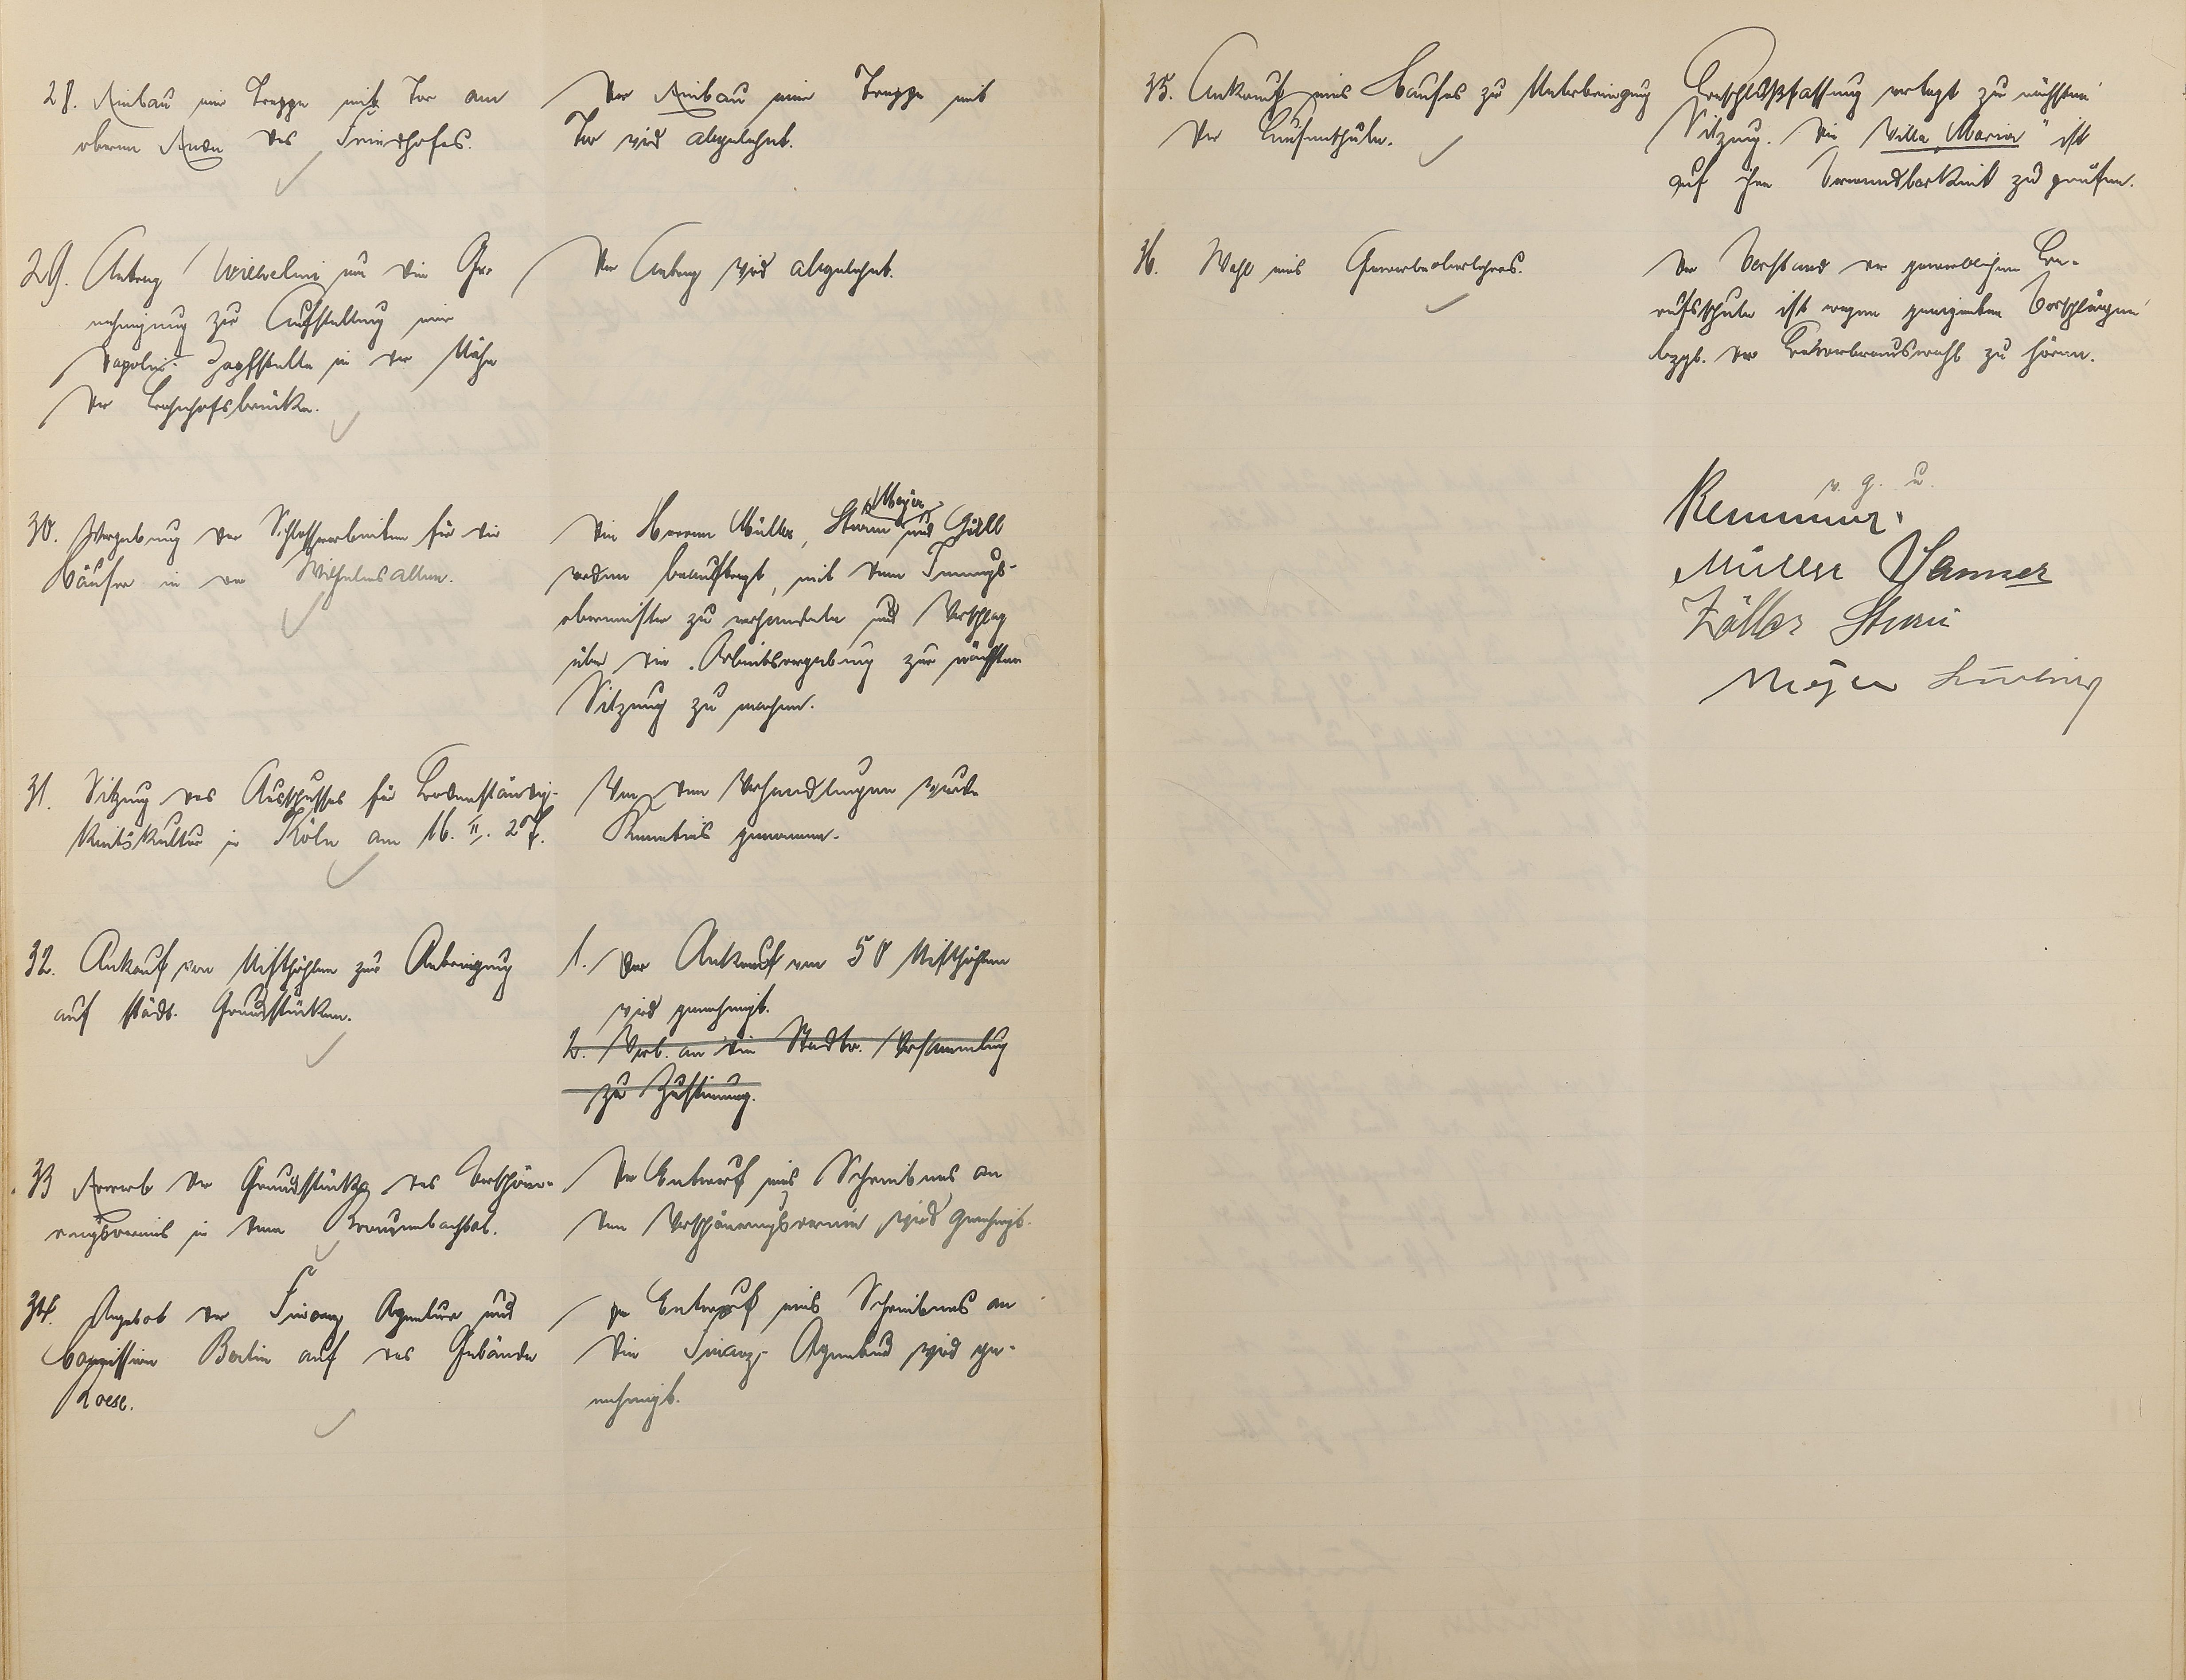 28. Einbau einer Treppe mit Tor am
oberen Ende des Friedhofes.
Der Einbau einer Treppe mit
Tor wird abgelehnt.
29. Antrag Wilhelmi um die Ge-
nehmigung zur Aufstellung einer
Dapolin-Zapfstelle in der Nähe
der Bahnhofsbrücke.
Der Antrag wird abgelehnt.
30. Vergebung der Schlosserarbeiten für die
Häuser in der Wilhelmsallee.
Die Herren Müller, Sturm Meyer und Göll
werden beauftragt, mit dem Innungs-
obermeister zu verhandeln und Vorschlag
über die Arbeitsvergebung zur nächsten
Sitzung zu machen.
31. Sitzung des Ausschusses für Bodenständig-
keitskultur in Köln am 16. II. 27.
Von den Verhandlungen wurde
Kenntnis genommen.
32. Ankauf von Nisthöhlen zur Anbringung
auf städt. Grundstücken.
1. Der Ankauf von 50 Nisthöhlen
wird genehmigt.
2. Vorl. an die Stadtv. Versammlung
zur Zustimmung.
33 Erwerb der Grundstücke des Verschöne-
rungsvereins in dem Braunebachtal.
Der Entwurf eines Schreibens an
den Verschönerungsverein wird genehmigt.
34. Angebot der Finanz Agentur und
Commission Berlin auf das Gebäude
Roese.
Der Entwurf eines Schreibens an
die Finanz-Agentur wird ge-
nehmigt.
35. Ankauf eines Hauses zur Unterbringung
der Berufsschule.
Beschlußfassung vertagt zur nächsten
Sitzung. Die Villa „Maria" ist
auf ihre Verwendbarkeit zu prüfen.
36. Wahl eines Gewerbeoberlehrers.
Der Vorstand der gewerblichen Be-
rufsschule ist wegen geeigneten Vorschlägen
bezgl. der Bewerberauswahl zu hören.
v. g. u.
Remmer.
Müller Sanner
Zöller Sturm
Meyer Ludwig